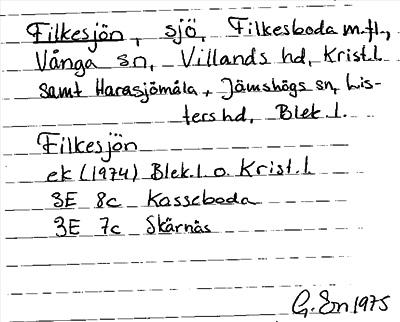 Filkesjön, sjö, Filkesboda m.fl.,
Vånga sn, Villands hd, Krist.l.
samt Harasjömåla, Jämshögs sn, Lis-
ters hd, Blek.l.
Filkesjön
ek (1974) Blek.l o. Krist.l
3E 8c Kasseboda
3E 7c Skärnäs
G. En 1975